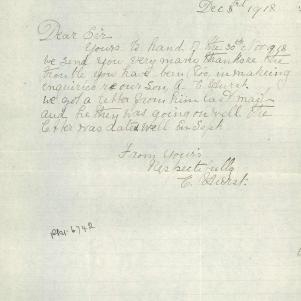 Dec 3rd 1918
Dear Sir
Yours to hand of the 30th Nov 1918
we send you very many thanks for the
trouble you have been to in making
enquiries re our Son A. E. Hurst.
we got a letter from him last mail
and he they was going on well the
letter was dated well in Sept
From Yours
Respectfully
E Hurst.